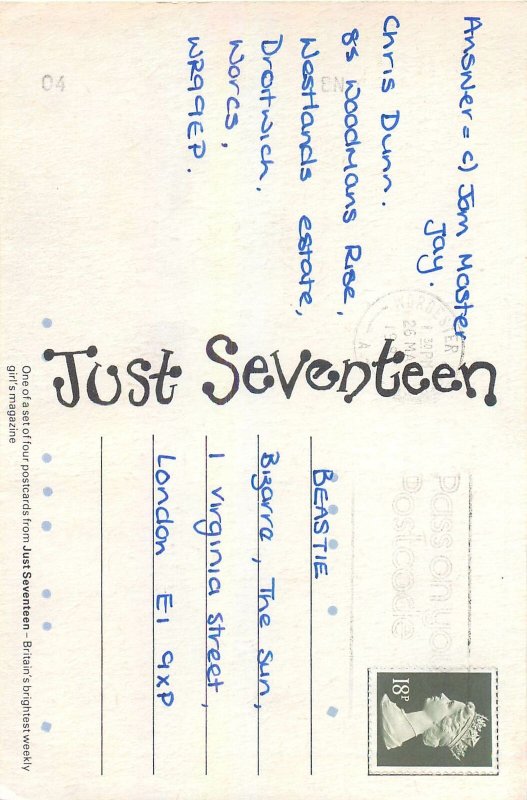 Answer = c) Jam Master
Jay.
Chris Dunn.
85 Woodmans Rise,
Westlands estate,
Droitwich.
Worcs,
WR9 9EP.
04
BN
WORCESTER
26 MA
Just Seventeen
BEASTIE
Bizarre, The Sun,
1 Virginia Street,
London E1 9XP
Pass on your
Postcode
18P
One of a set of four postcards from Just Seventeen – Britain's brightest weekly
girl's magazine